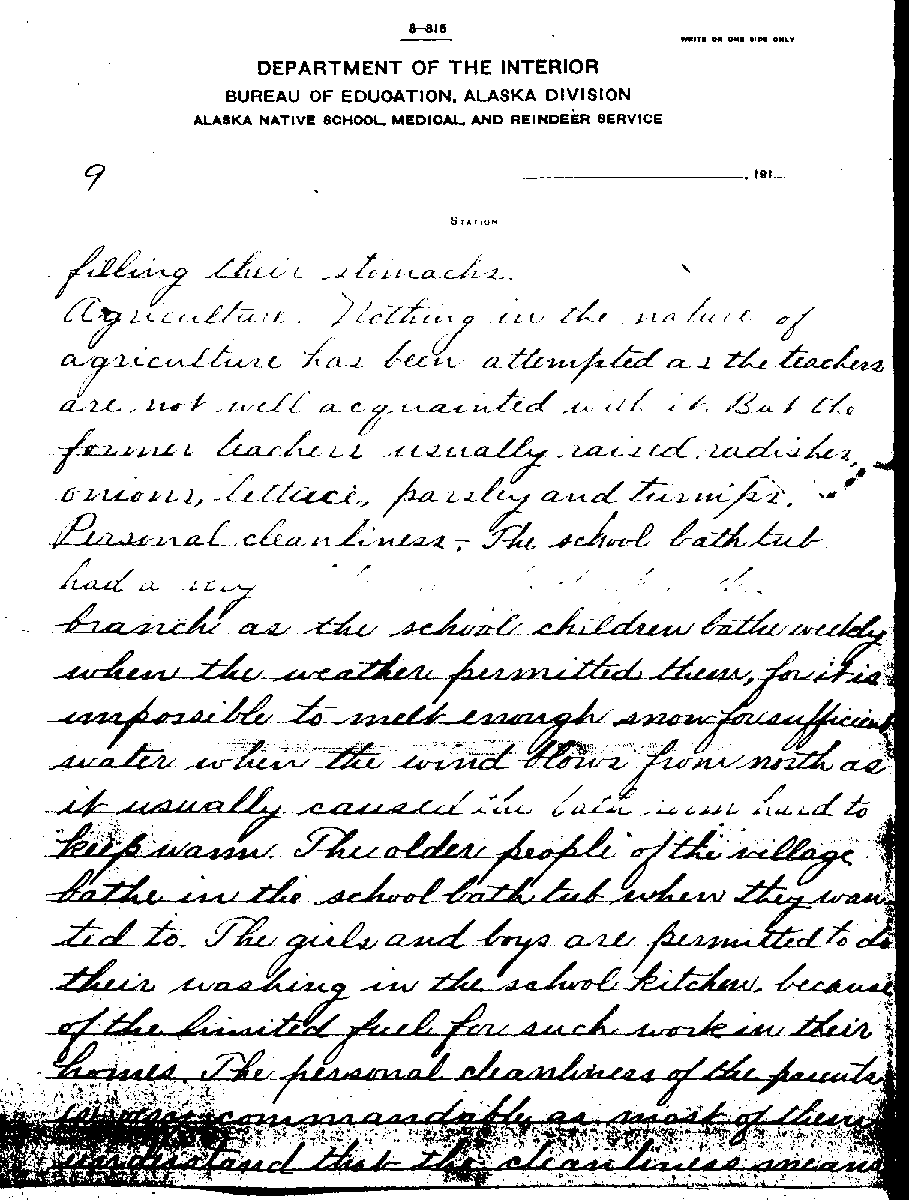 8-815
WRITE ON ONE SIDE ONLY
DEPARTMENT OF THE INTERIOR
BUREAU OF EDUCATION, ALASKA DIVISION
ALASKA NATIVE SCHOOL, MEDICAL, AND REINDEER SERVICE
9
, 191
STATION
filling their stomachs.
Agriculture. Nothing in the nature of
agriculture has been attempted as the teachers
are not well acquainted with it. But the
former teachers usually raised radishes,
onions, lettuce, parsley and turnips.
Personal cleanliness - The school bath tub
had a very
branch as the school children bathe weekly
when the weather permitted them, for it is
impossible to melt enough snow for sufficient
water when the wind blows from north as
it usually caused the bath room hard to
keep warm. The older people of the village
bathe in the school bath tub when they wan-
ted to. The girls and boys are permitted to do
their washing in the school kitchen, because
of the limited fuel for such work in their
homes. The personal cleanliness of the parents
is very commandable as most of them
understand that the cleanliness means